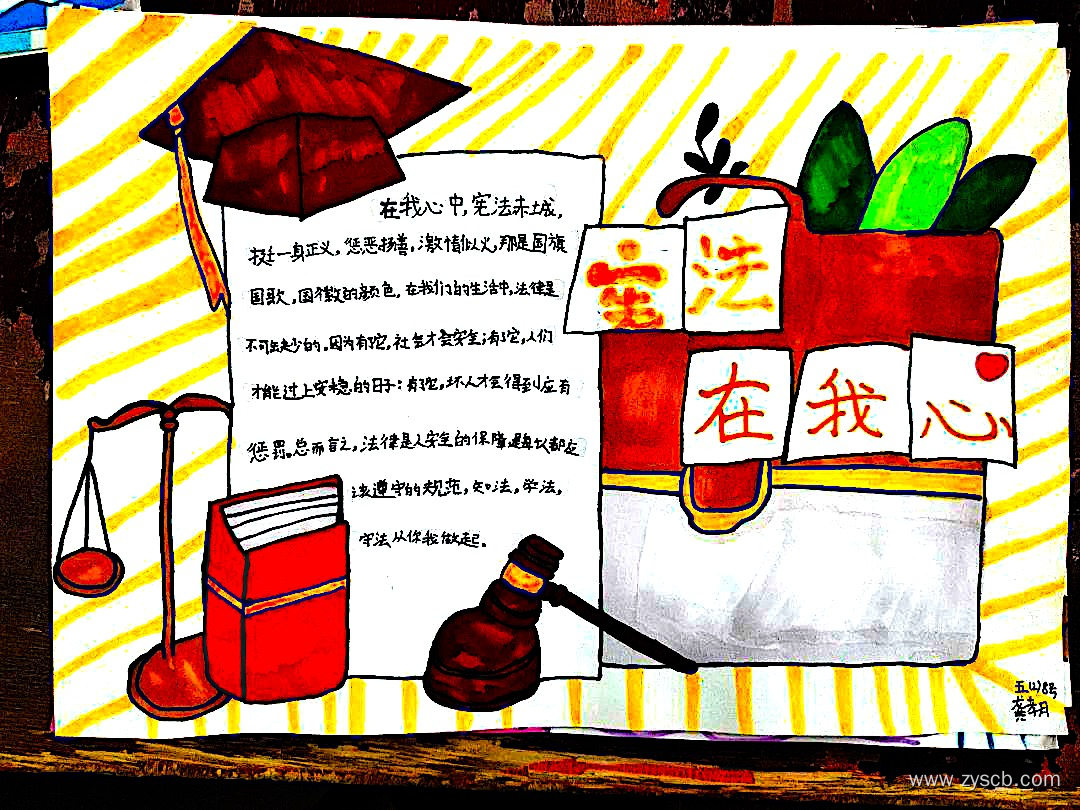 在我心中,宪法赤城,
挺一身正义,惩恶扬善,激情似火,那是国旗
国歌,国徽的颜色,在我们的生活中,法律是
不可缺少的,因为有它,社会才会安全;有它,人们
才能过上安稳的日子;有它,坏人才会得到应有
惩罚。总而言之,法律是人安全的保障,是每从都应
该遵守的规范,知法,学法,
守法从你我做起。
宪法
在我心
五(2)8号
龚孝月
www.zyscb.com